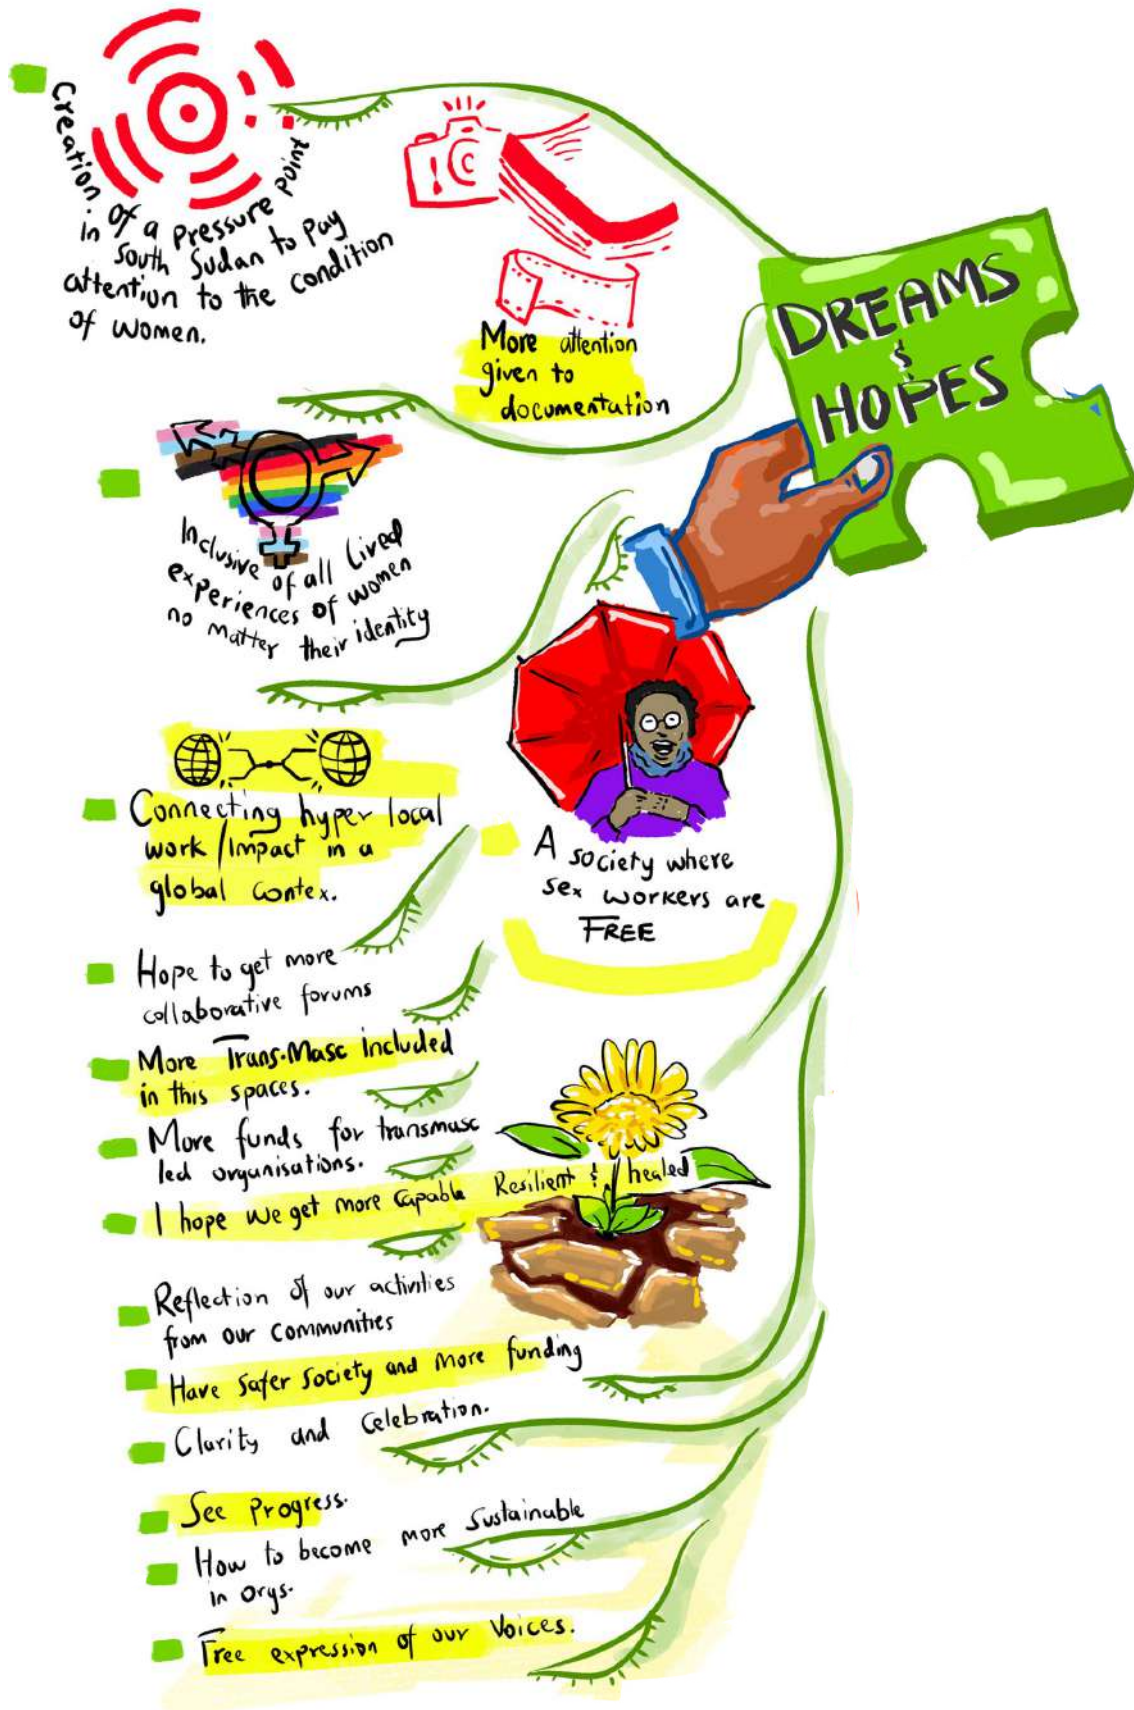 DREAMS
&
HOPES
Creation of a pressure point
in South Sudan to pay
attention to the condition
of women.
More attention
given to
documentation
Inclusive of all lived
experiences of women
no matter their identity
A society where
sex workers are
FREE
Connecting hyper local
work/Impact in a
global contex.
Hope to get more
collaborative forums
More Trans.Masc included
in this spaces.
More funds for transmasc
led organisations.
I hope we get more capable Resilient & healed
Reflection of our activities
from our communities
Have safer society and more funding
Clarity and celebration.
See progress.
How to become more sustainable
in orgs.
Free expression of our voices.